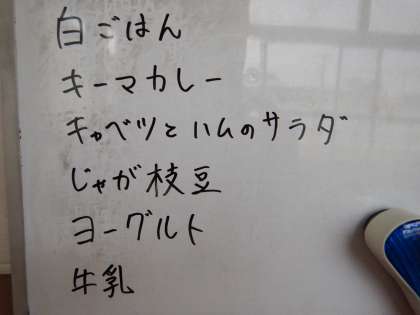 白ごはん
キーマカレー
キャベツとハムのサラダ
じゃが枝豆
ヨーグルト
牛乳